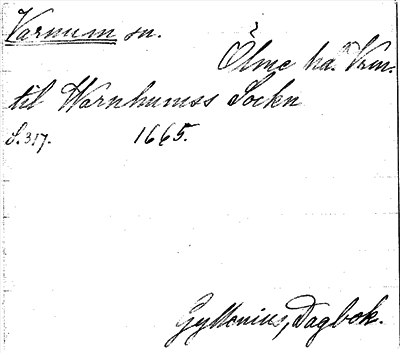 Varnum sn.
Ölme hd. Vrm.
til Warnhumss Sockn
S. 317. 1665.
Gyllenius, Dagbok.